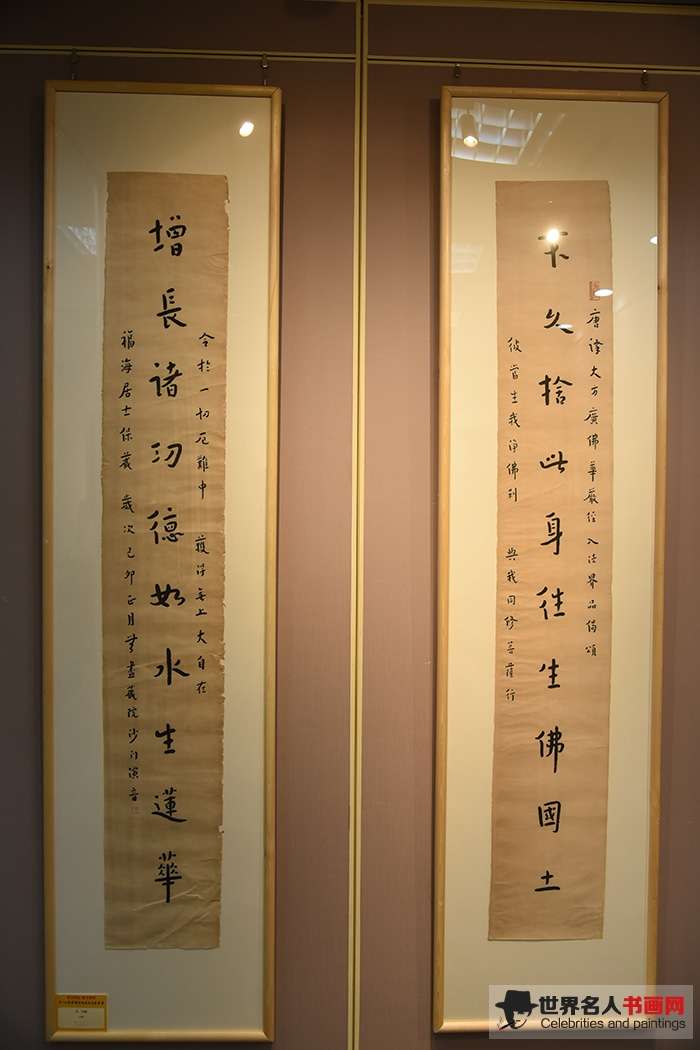 唐譯大方廣佛華嚴經入法界品偈頌
不久捨此身往生佛國土
彼當生我淨佛刹 與我同修菩薩行
令於一切厄難中 獲得無上大自在
增長諸功德如水生蓮華
福海居士保藏 歲次己卯正月無盡藏院沙門演音
世界名人书画网
Celebrities and paintings